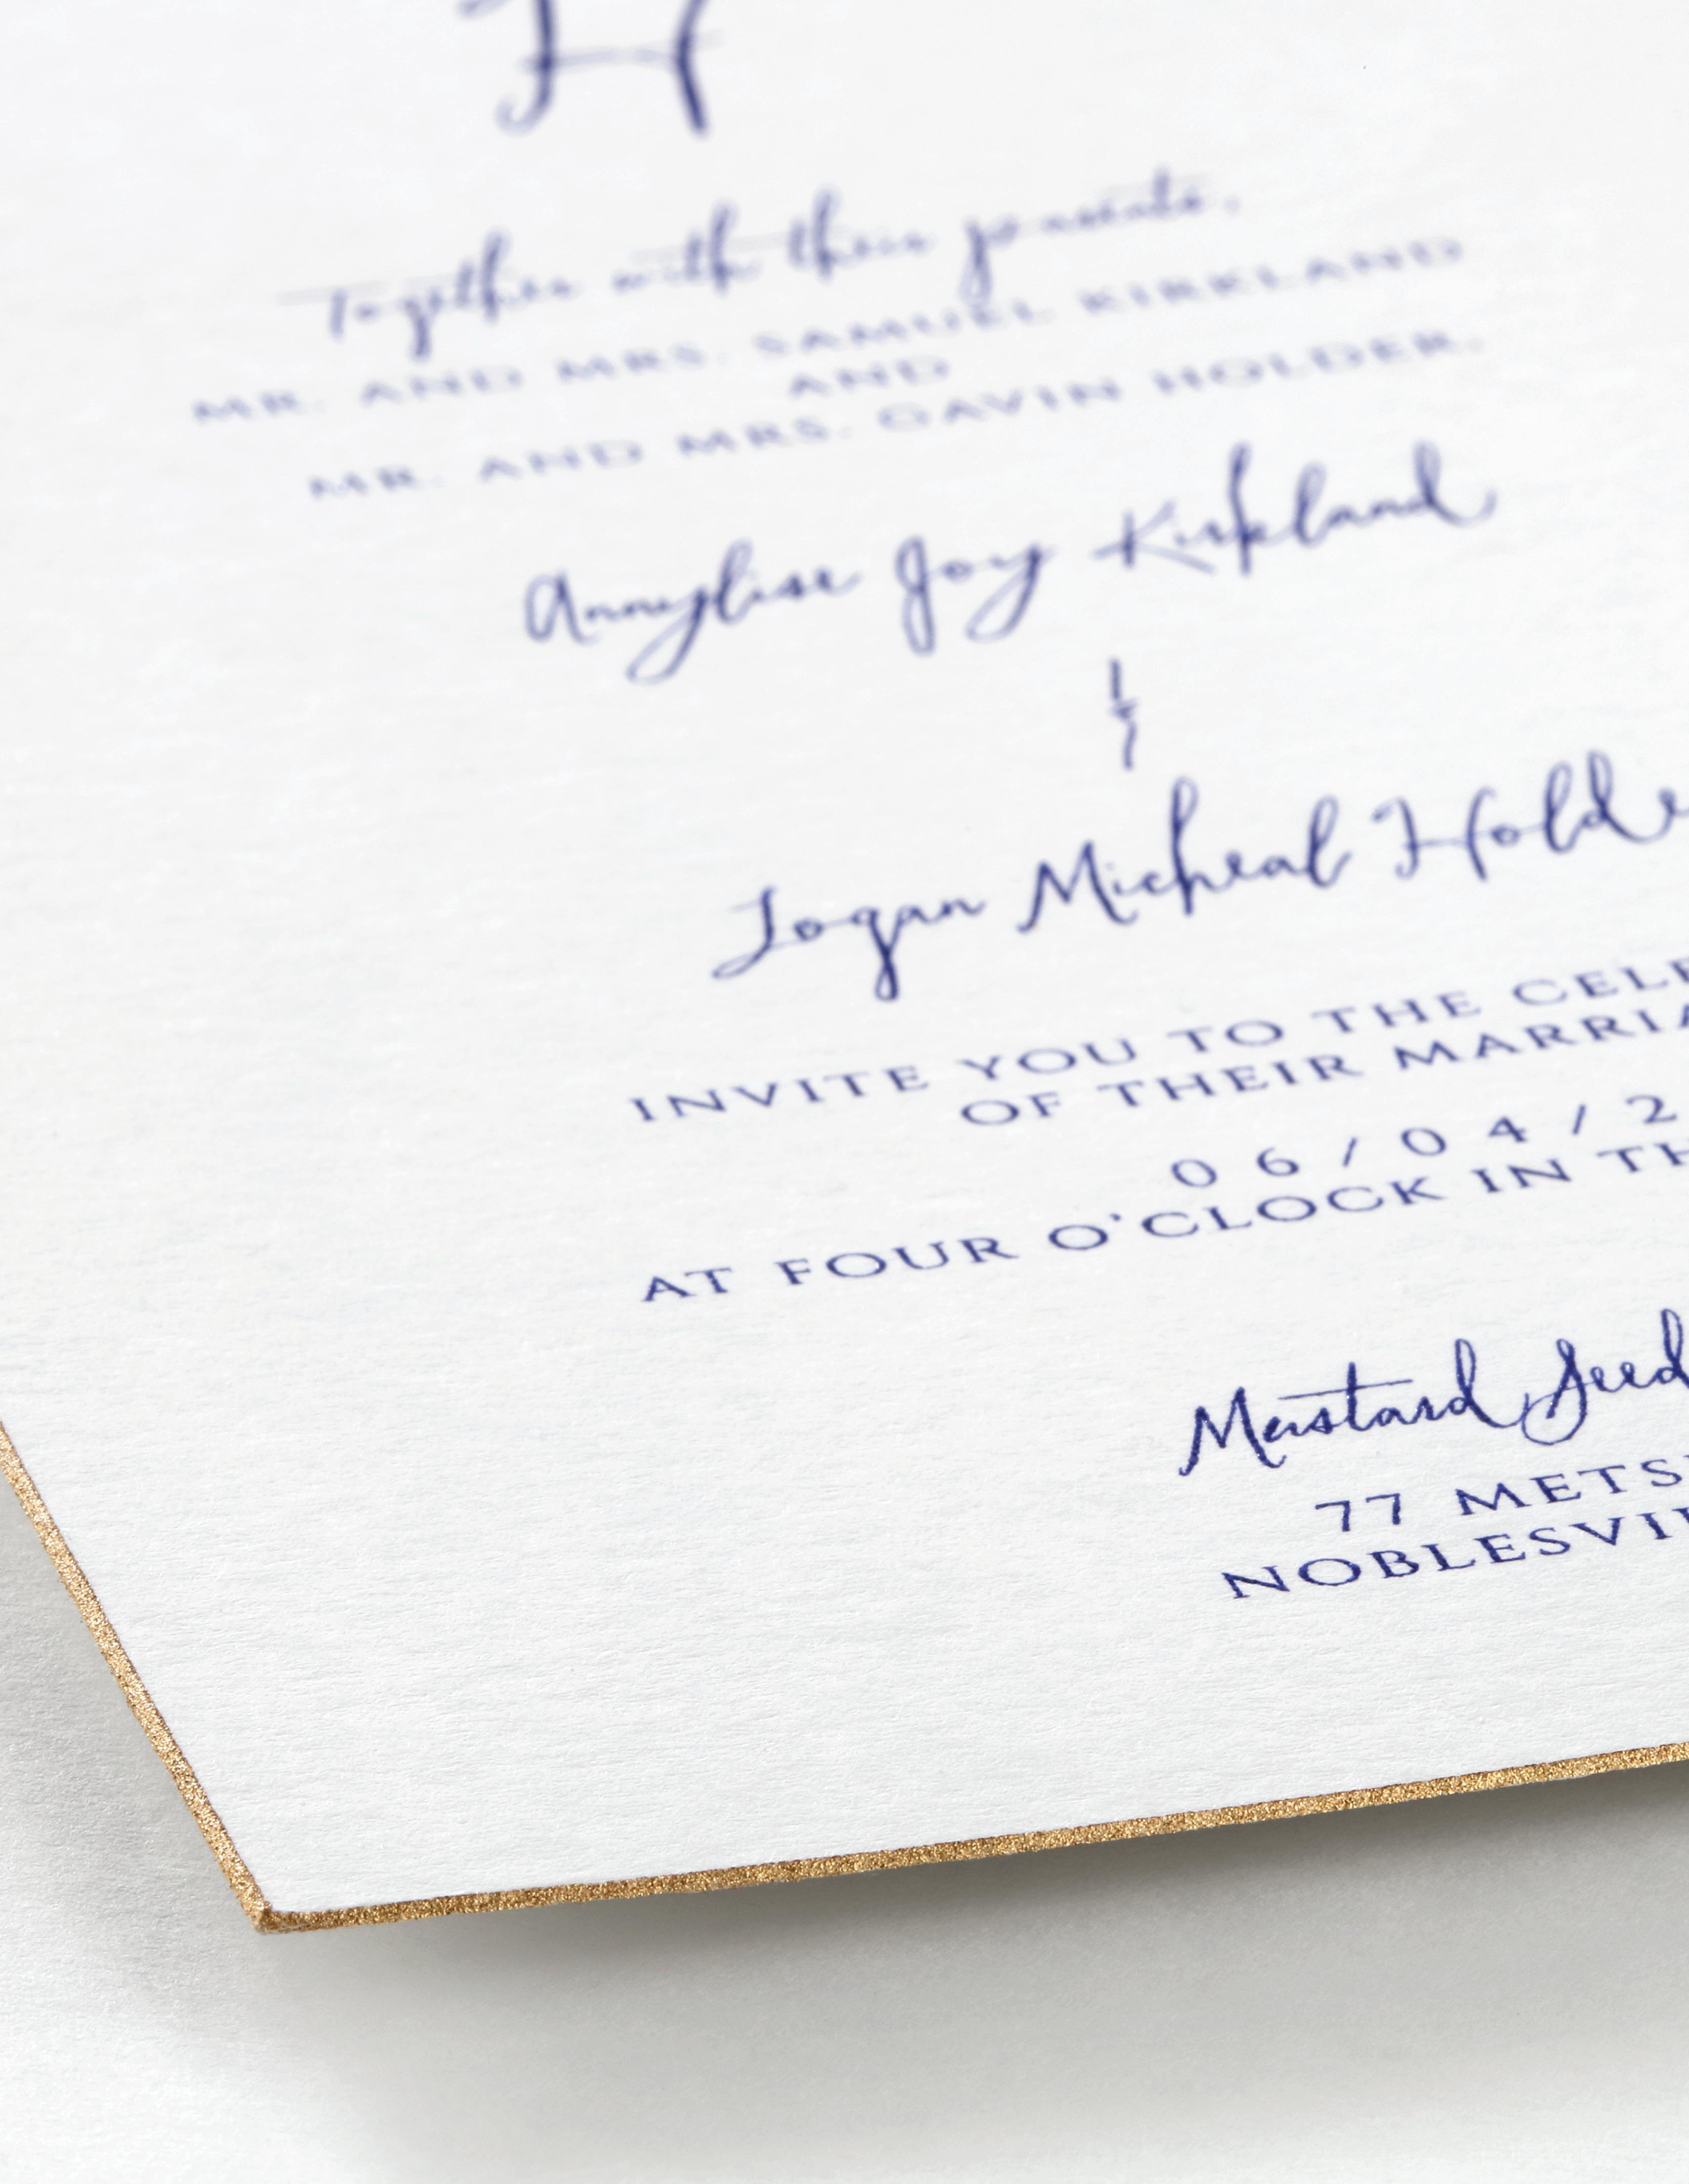 H
Together with their parents,
MR. AND MRS. SAMUEL KIRKLAND
AND
MR. AND MRS. GAVIN HOLDER.
Annylise Joy Kirkland
Logan Micheal Holde
INVITE YOU TO THE CELE
OF THEIR MARRIA
06/04/2
AT FOUR O'CLOCK IN TH
Mustard Seed
77 METS
NOBLESVIL